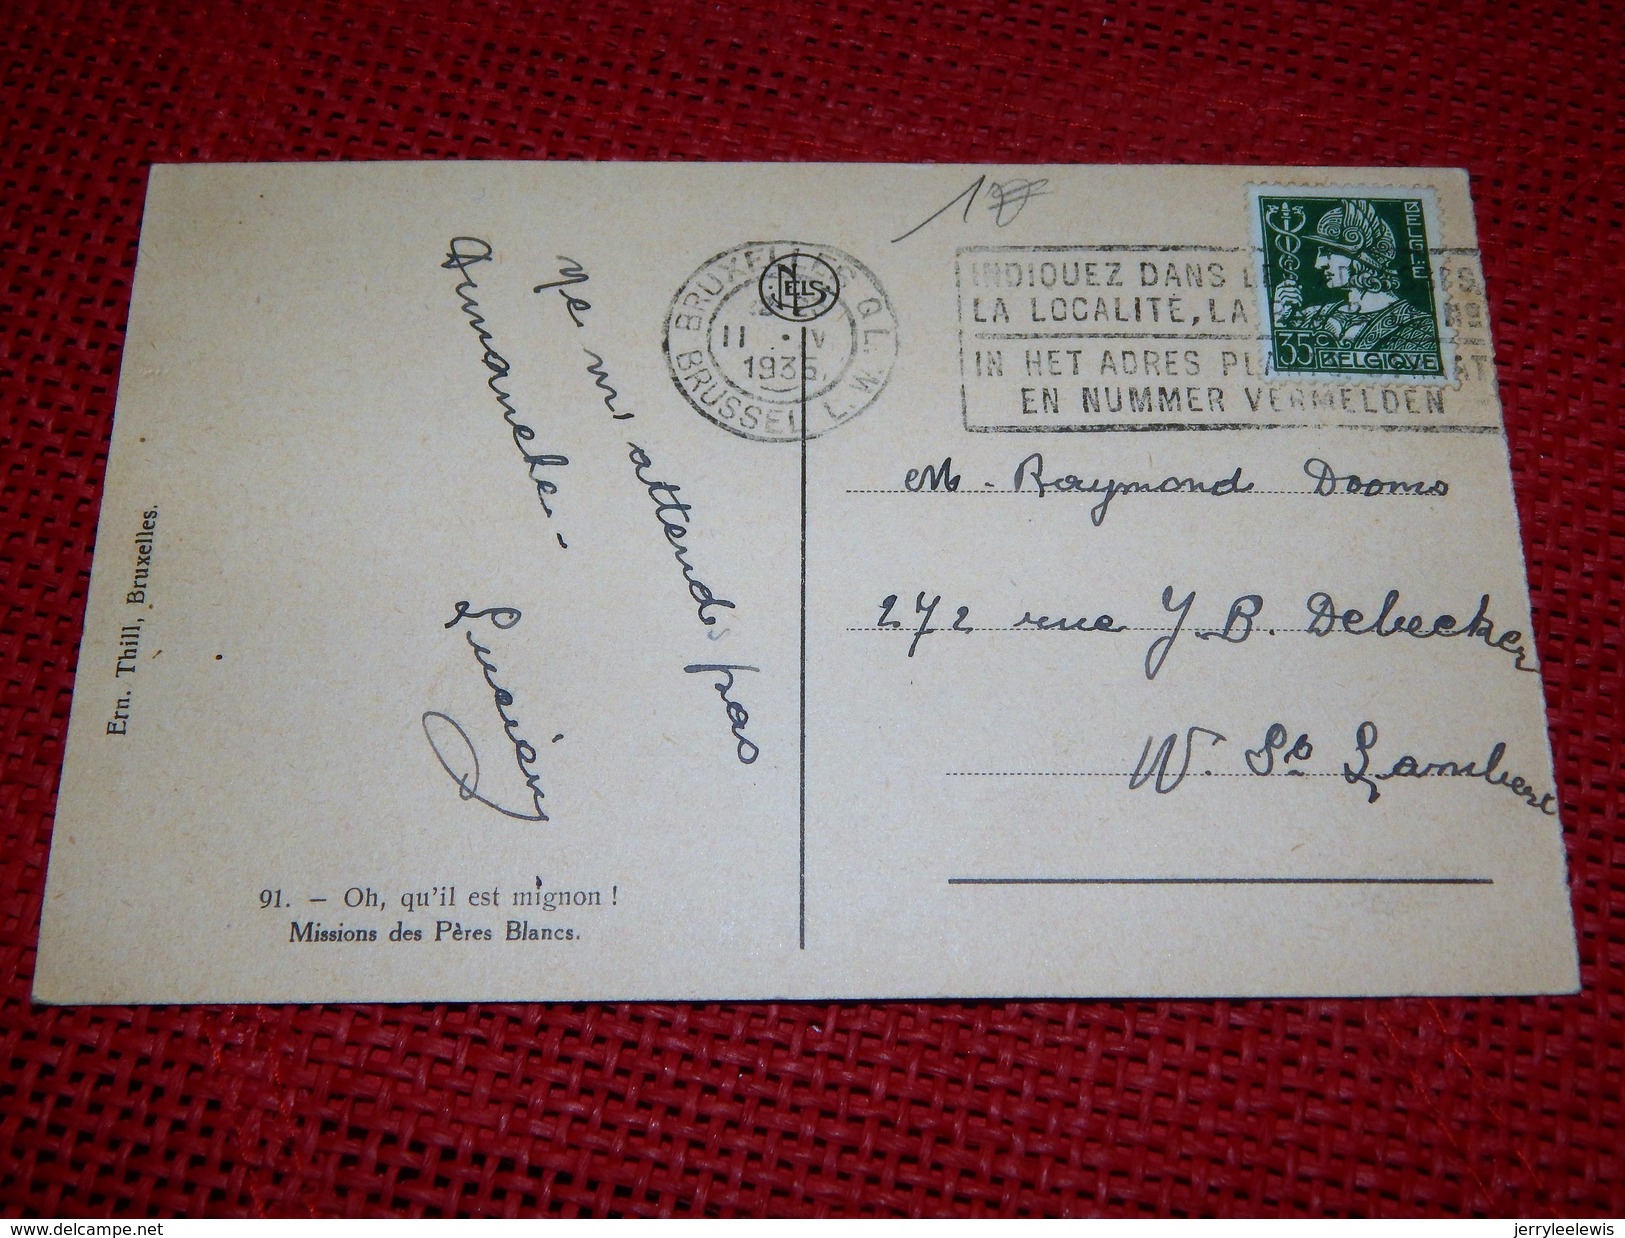 Ne m'attends pas
Dimanche -
Lucien
Ern. Thill, Bruxelles.
91. — Oh, qu'il est mignon !
Missions des Pères Blancs.
NELS
BRUXELLES Q.L.
11 · V
1935
BRUSSEL L.W.
INDIQUEZ DANS
LA LOCALITÉ, LA No
IN HET ADRES
EN NUMMER VERMELDEN
BELGIE
35 c BELGIQUE
M. Raymond Dooms
272 rue J. B. Debecker
W. St Lambert
delcampe.net
jerryleelewis